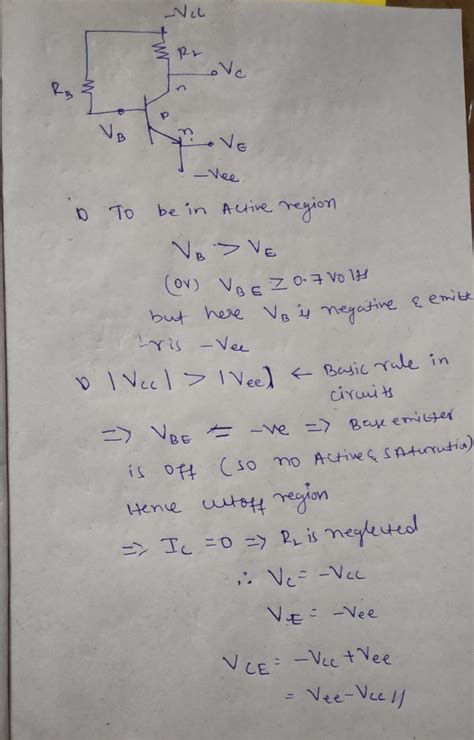 -Vcc
RL
VC
RB
n
P
VB
n
VE
-Vee
1) To be in Active region
VB > VE
(or) VBE ≥ 0.7 Volts
but here VB is negative & emitt
-er is -Vee
1) |Vcc| > |Vee| ← Basic rule in
circuits
⇒ VBE = -ve ⇒ Base emitter
is off (so no Active & sAturation)
Hence cutoff region
⇒ IC = 0 ⇒ RL is neglected
∴ VC = -Vcc
VE = -Vee
VCE = -Vcc + Vee
= Vee - Vcc //